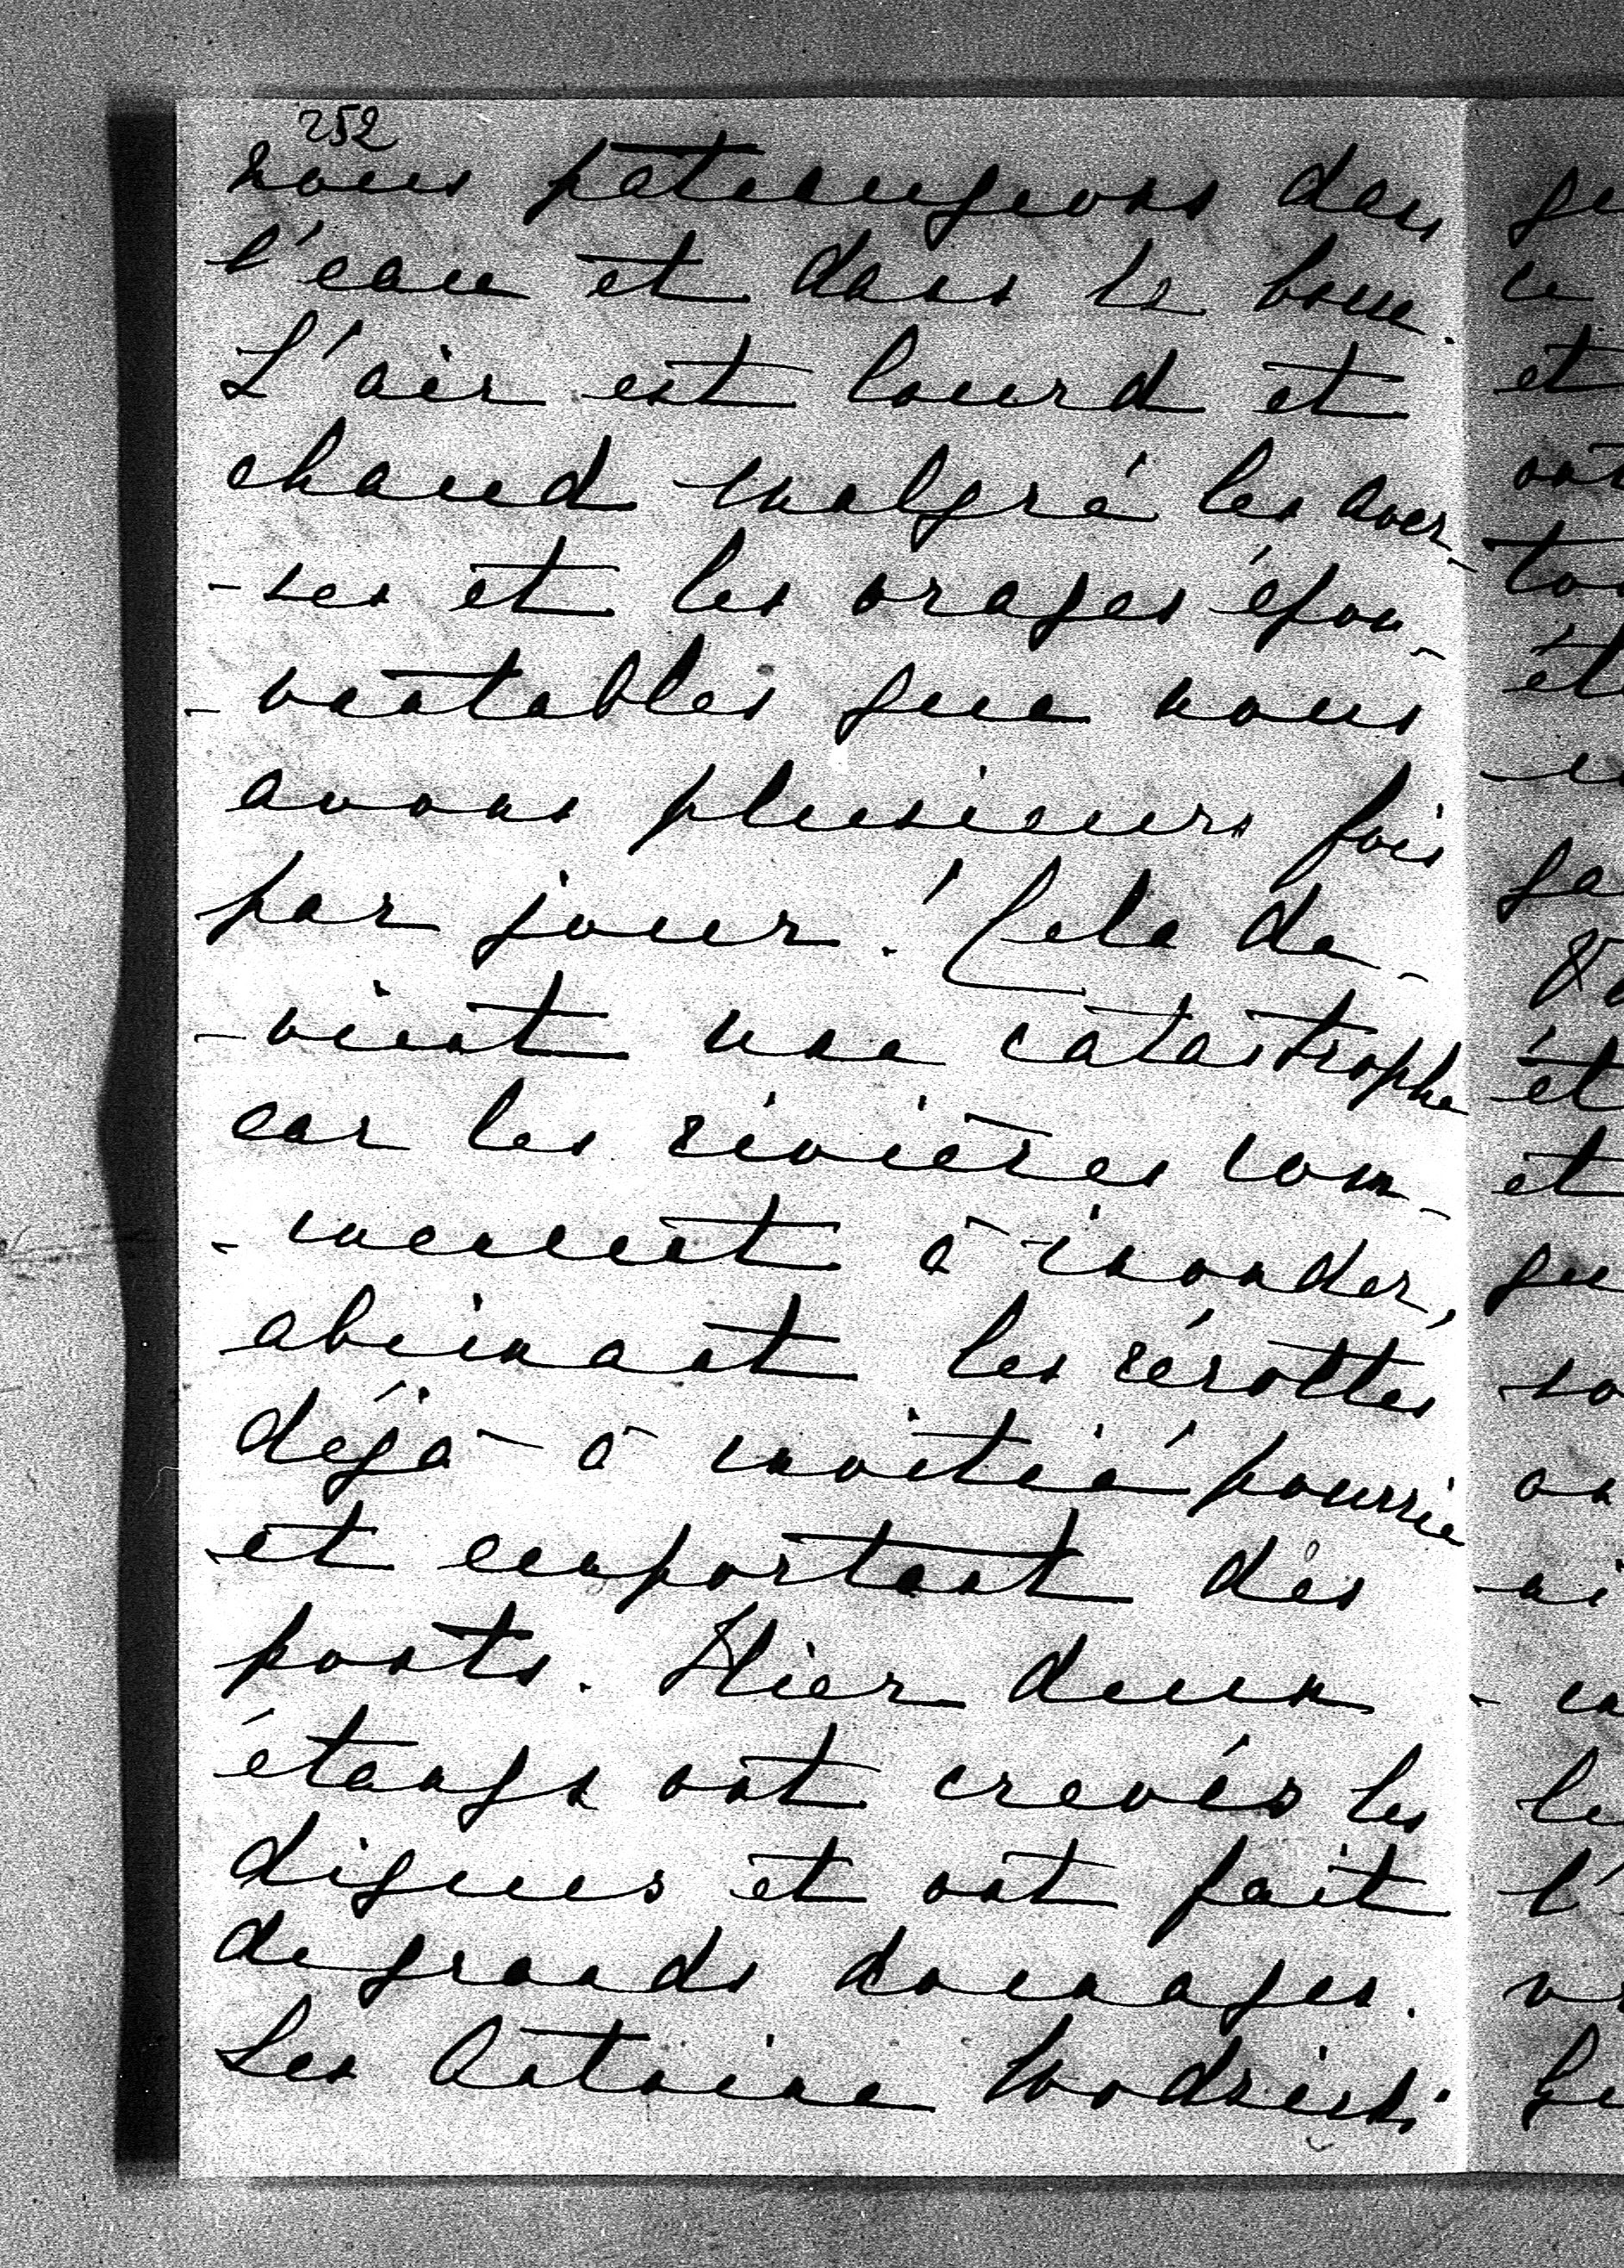 252
nous pataugeons dans
l'eau et dans la boue.
L'air est lourd et
chaud malgré les aver-
-ses et les orages épou-
-vantables que nous
avons plusieurs fois
par jour! Cela de-
-vient une catastrophe
car les rivières com-
-mencent à inonder,
abimant les récoltes
déjà à moitié pourries
et emportant des
ponts. Hier deux
étangs ont crevés les
digues et ont fait
de grands domages.
Les Antoine Wodzicki